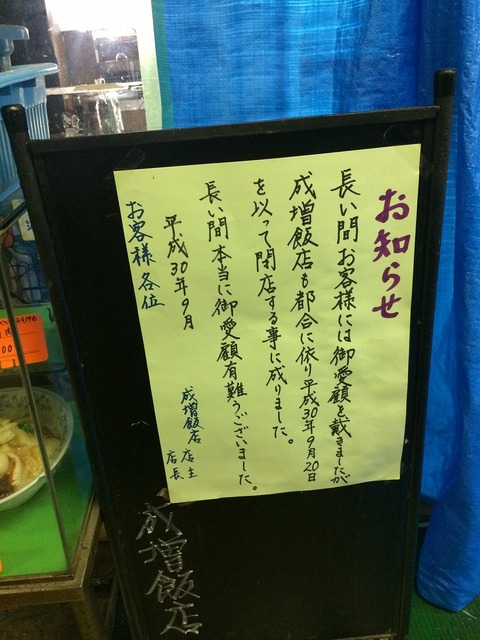 お知らせ
長い間お客様には御愛顧を戴きましたが
成増飯店も都合に依り平成30年9月20日
を以って閉店する事に成りました。
長い間本当に御愛顧有難うございました。
平成30年9月
お客様各位
成増飯店 店主
店長
成増飯店